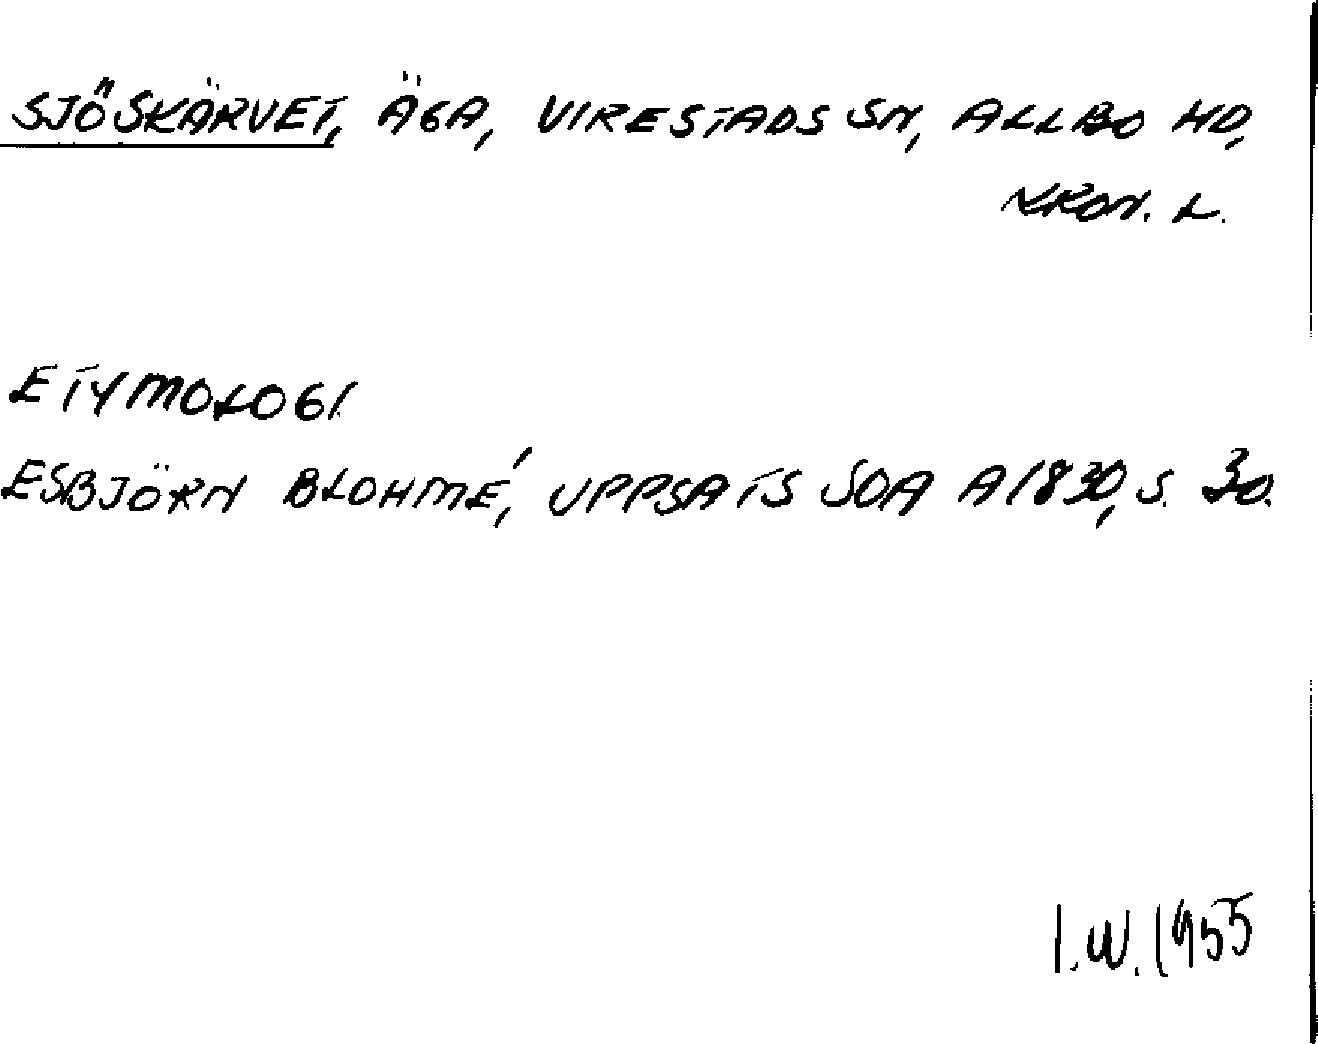 SJÖSKÄRVET, ÄGA, VIRESTADS SN, ALLBO HD,
KRON. L.
ETYMOLOGI.
ESBJÖRN BLOHMÉ, UPPSATS SOA A1830, S. 30.
I.W. 1955